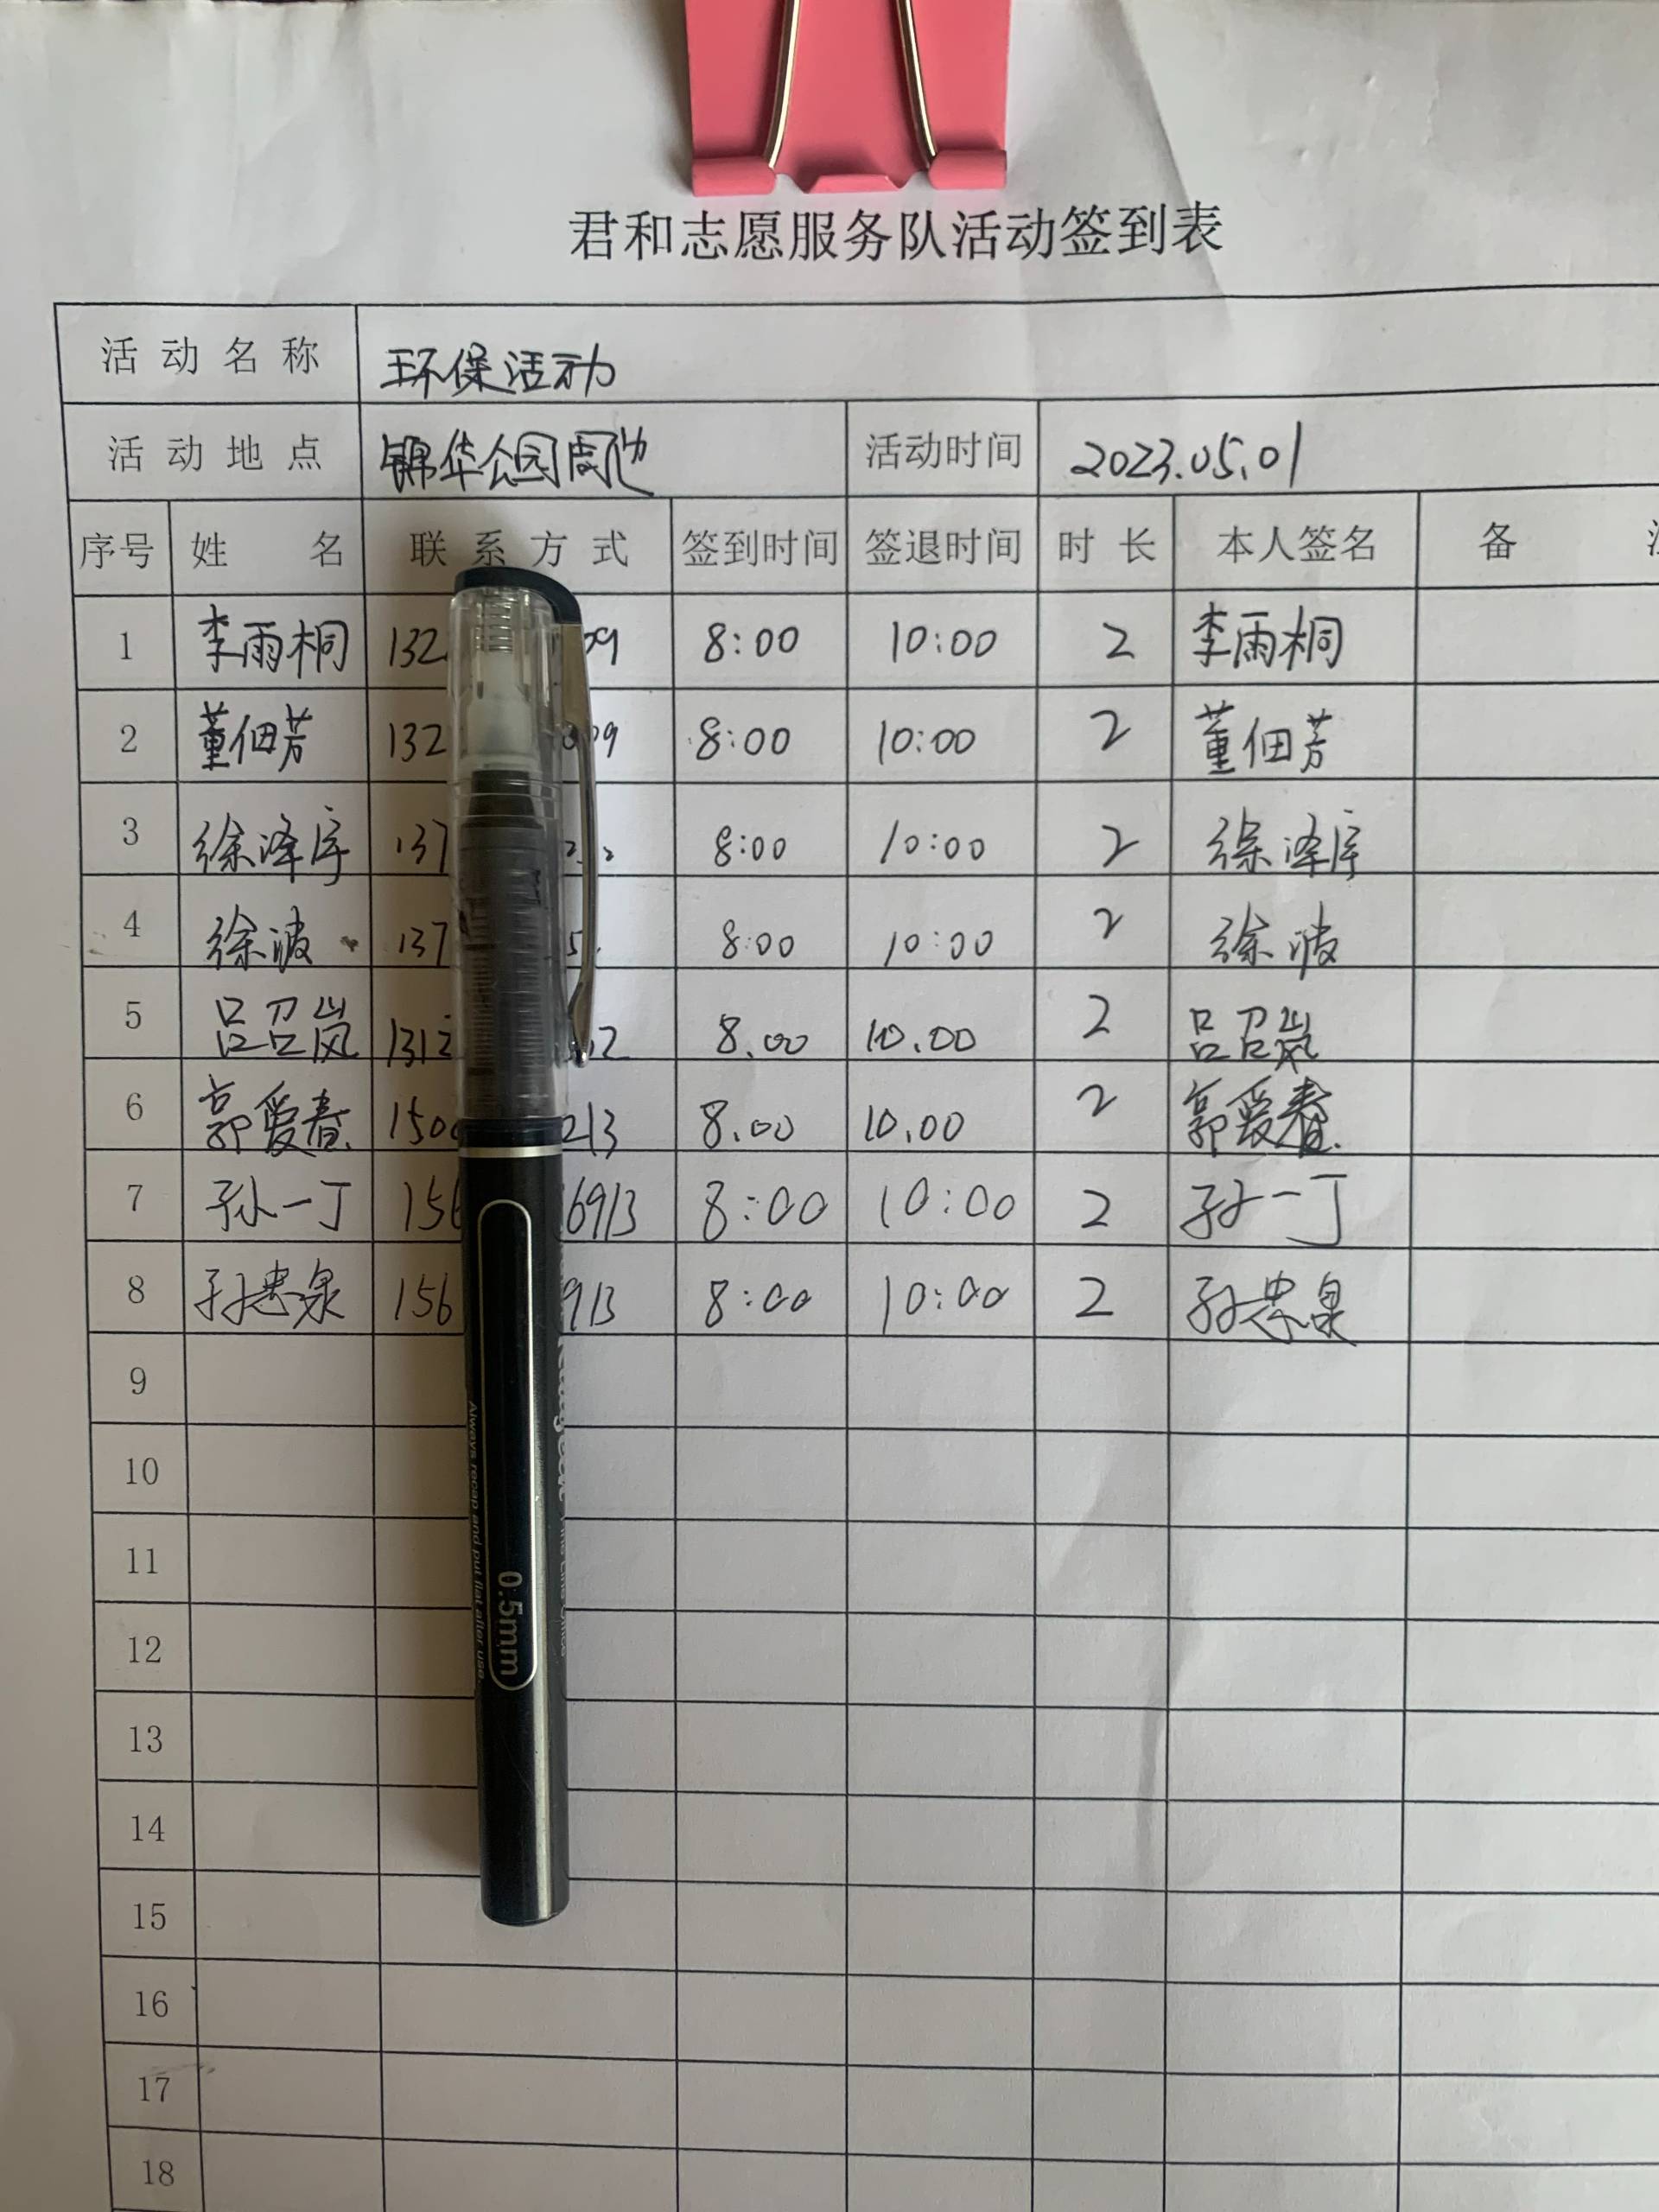 君和志愿服务队活动签到表
活动名称 环保活动
活动地点 锦华公园周边 活动时间 2023.05.01
序号 姓名 联系方式 签到时间 签退时间 时长 本人签名 备
1 李雨桐 132 09 8:00 10:00 2 李雨桐
2 董佃芳 132 09 8:00 10:00 2 董佃芳
3 徐泽宇 137 8:00 10:00 2 徐泽宇
4 徐波 137 8:00 10:00 2 徐波
5 吕召岚 1312 2 8.00 10.00 2 吕召岚
6 郭爱春 150 213 8.00 10.00 2 郭爱春
7 孙一丁 156 6913 8:00 10:00 2 孙一丁
8 孙忠泉 156 913 8:00 10:00 2 孙忠泉
9
10
11
12
13
14
15
16
17
18
Always recap and put flat after use.
0.5mm